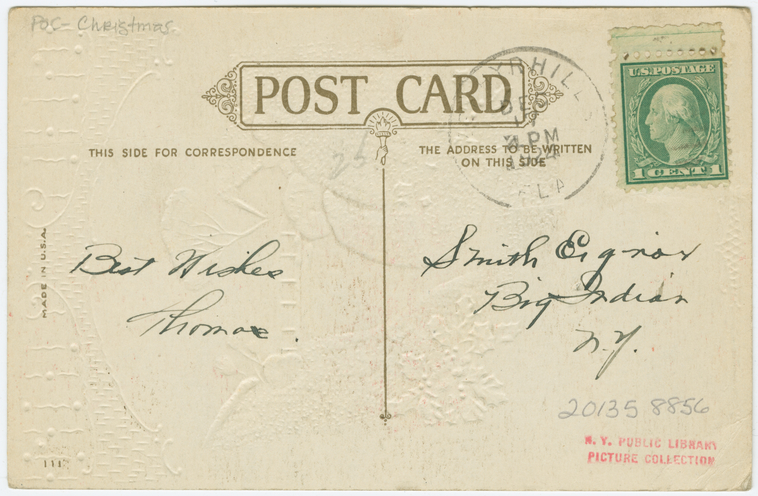 POC- Christmas.
POST CARD
THIS SIDE FOR CORRESPONDENCE
THE ADDRESS TO BE WRITTEN
ON THIS SIDE
U.S. POSTAGE
1 CENT 1
DEC
PM
FLA
MADE IN U.S.A.
Best Wishes
Thomas
Smith
Big Indian
N.Y.
20135 8856
N. Y. PUBLIC LIBRARY
PICTURE COLLECTION
111